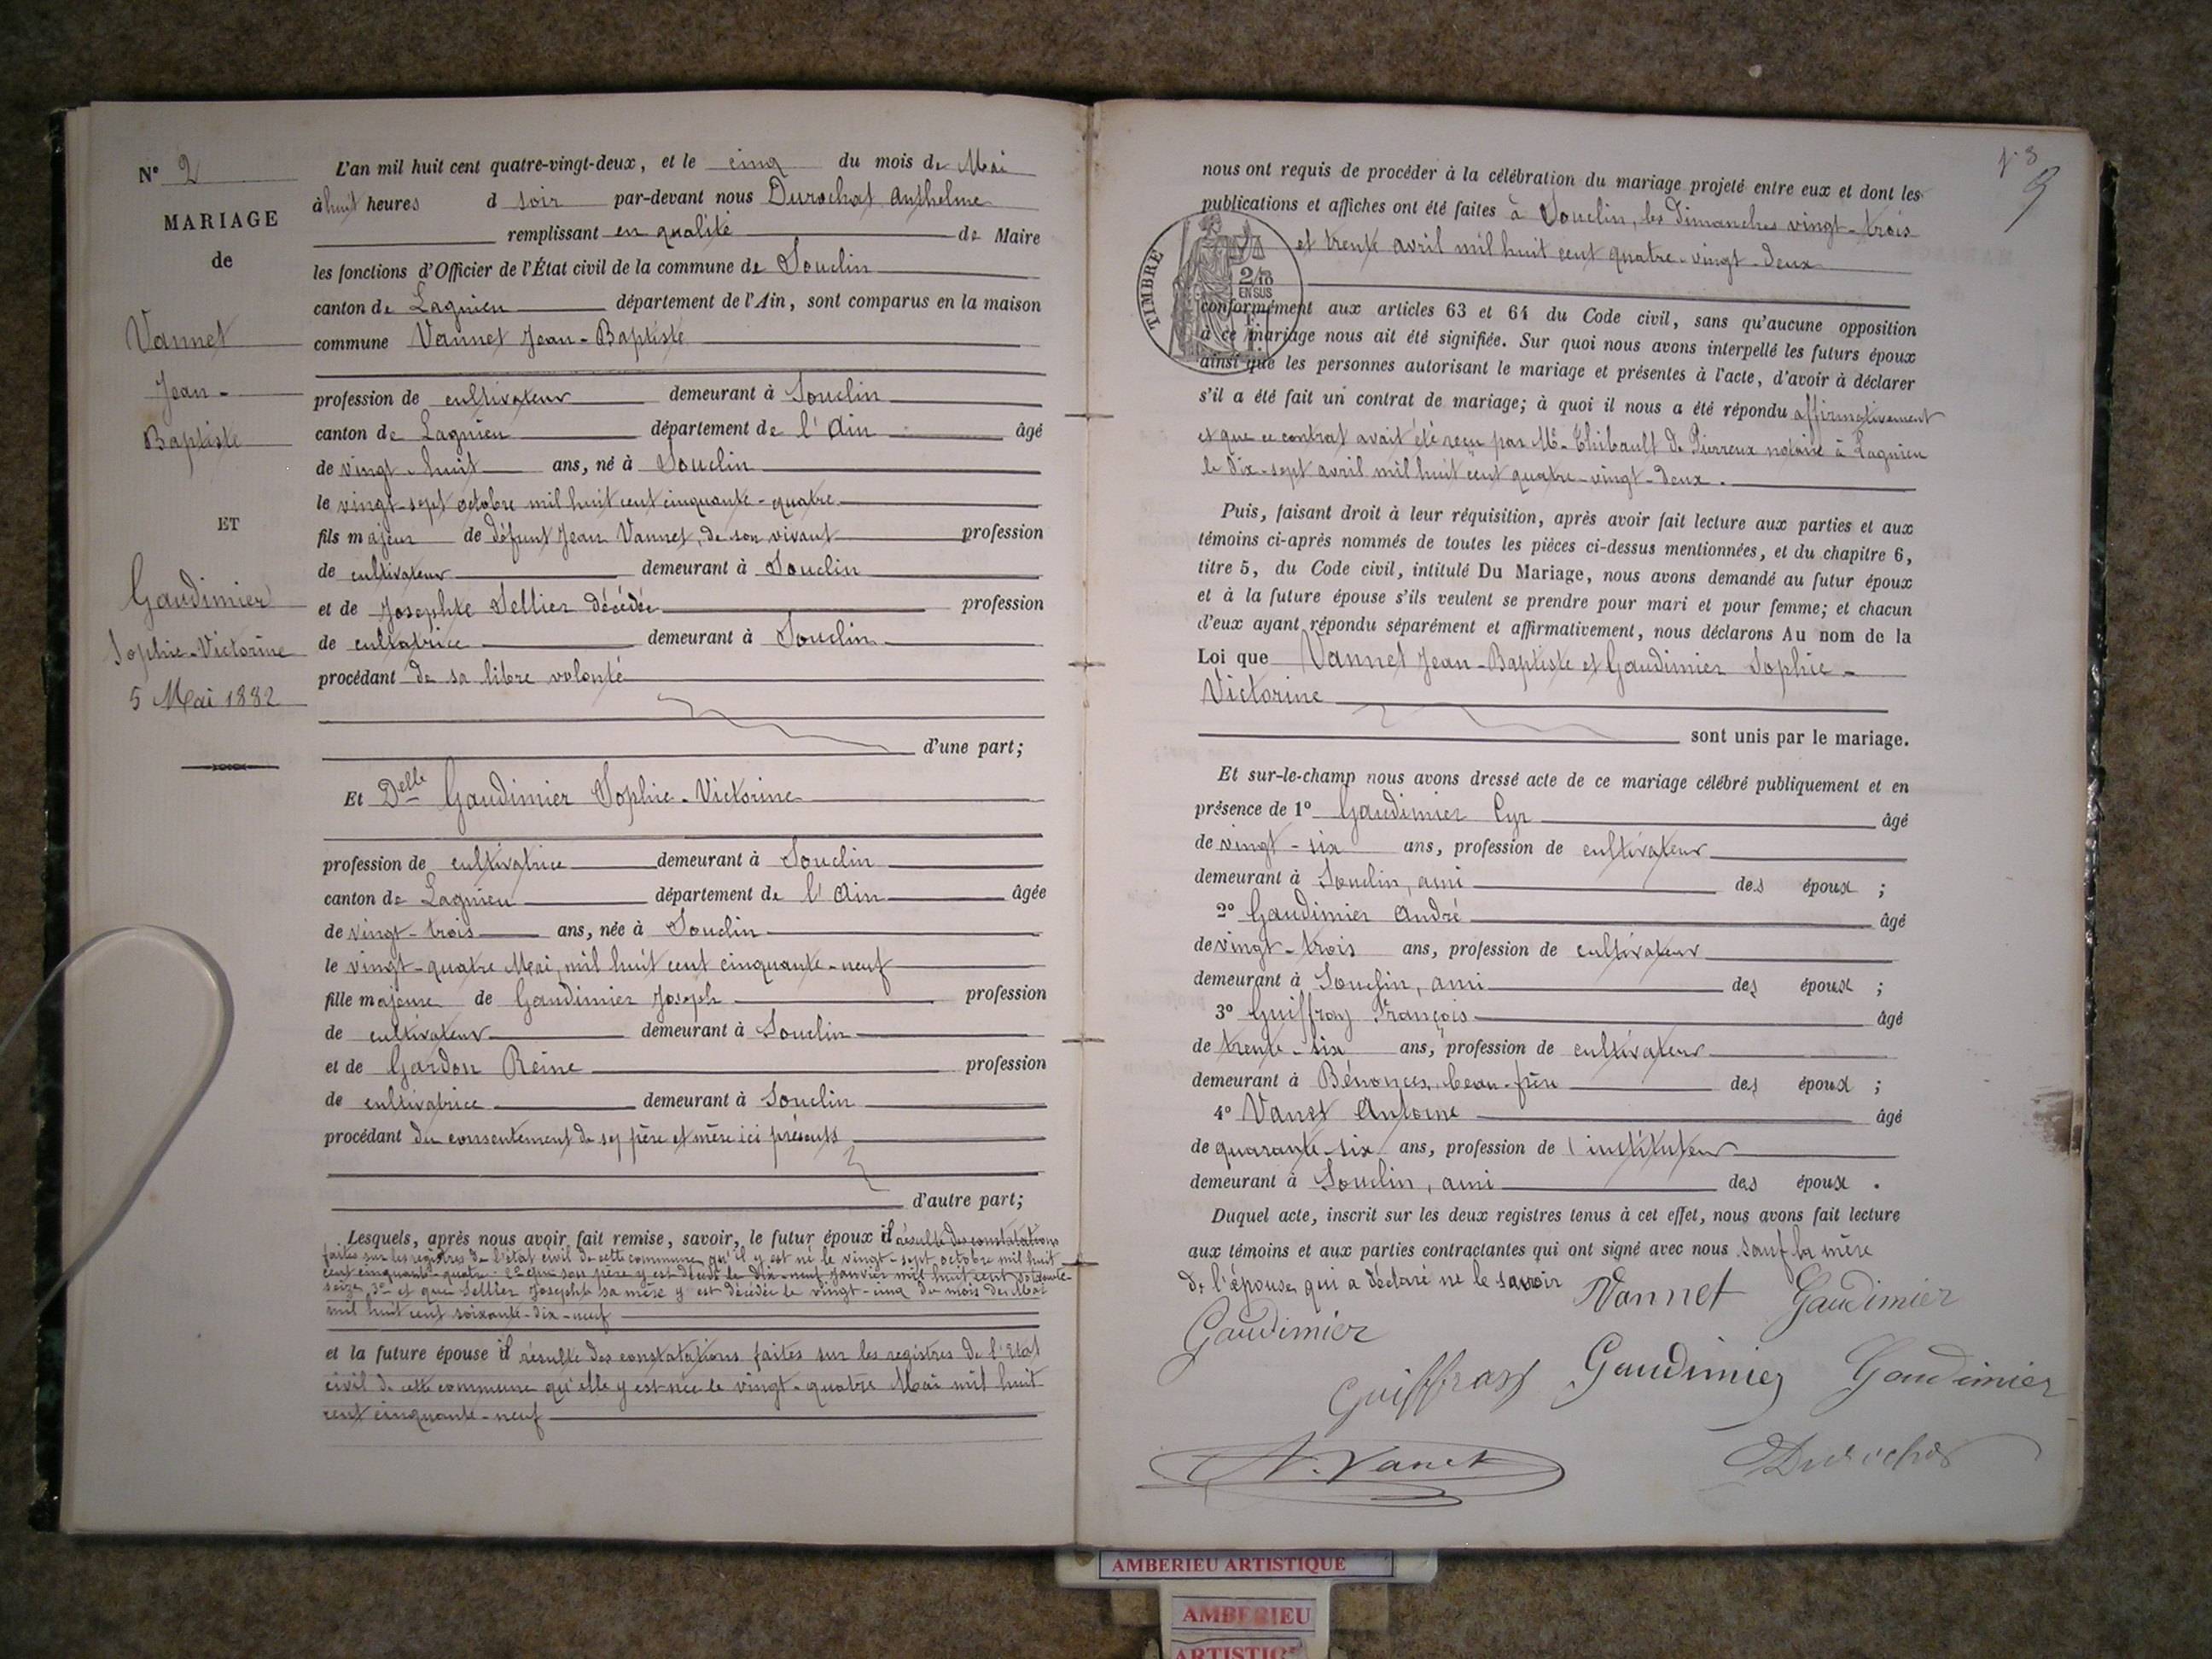 N° 2
MARIAGE
de
Vannet
Jean-
Baptiste
ET
Gaudimier
Sophie-Victorine
5 Mai 1882
L'an mil huit cent quatre-vingt-deux, et le cinq du mois de Mai
à huit heures d soir par-devant nous Durochat Anthelme
remplissant en qualité de Maire
les fonctions d'Officier de l'État civil de la commune de Souclin
canton de Lagnieu département de l'Ain, sont comparus en la maison
commune Vannet Jean-Baptiste
profession de cultivateur demeurant à Souclin
canton de Lagnieu département de l'Ain âgé
de vingt-huit ans, né à Souclin
le vingt-sept octobre mil huit cent cinquante-quatre
fils majeur de défunt Jean Vannet, de son vivant profession
de cultivateur demeurant à Souclin
et de Josephte Sellier décédée profession
de cultatrice demeurant à Souclin
procédant de sa libre volonté
d'une part;
Et Delle Gaudimier Sophie-Victorine
profession de cultivatrice demeurant à Souclin
canton de Lagnieu département de l'Ain âgée
de vingt-trois ans, née à Souclin
le vingt-quatre Mai, mil huit cent cinquante-neuf
fille majeure de Gaudimier Joseph profession
de cultivateur demeurant à Souclin
et de Gardon Reine profession
de cultivatrice demeurant à Souclin
procédant du consentement de ses père et mère ici présents
d'autre part;
Lesquels, après nous avoir fait remise, savoir, le futur époux il résulte des constatations
faites sur les registres de l'état civil de cette commune qu'il y est né le vingt-sept octobre mil huit
cent cinquante-quatre. 2° que son père y est décédé le dix-neuf Janvier mil huit cent soixante-
seize, 3° et que Sellier Josephte sa mère y est décédée le vingt-cinq du mois de Mai
mil huit cent soixante-dix-neuf
et la future épouse il résulte des constatations faites sur les registres de l'Etat
civil de cette commune qu'elle y est née le vingt-quatre Mai mil huit
cent cinquante-neuf
9
nous ont requis de procéder à la célébration du mariage projeté entre eux et dont les
publications et affiches ont été faites à Souclin, les Dimanches vingt-trois
et trente avril mil huit cent quatre-vingt-deux
TIMBRE
2/10
EN SUS
conformément aux articles 63 et 64 du Code civil, sans qu'aucune opposition
à ce mariage nous ait été signifiée. Sur quoi nous avons interpellé les futurs époux
ainsi que les personnes autorisant le mariage et présentes à l'acte, d'avoir à déclarer
s'il a été fait un contrat de mariage; à quoi il nous a été répondu affirmativement
et que ce contrat avait été reçu par Me Thibault de Pierreux notaire à Lagnieu
le dix-sept avril mil huit cent quatre-vingt-deux.
Puis, faisant droit à leur réquisition, après avoir fait lecture aux parties et aux
témoins ci-après nommés de toutes les pièces ci-dessus mentionnées, et du chapitre 6,
titre 5, du Code civil, intitulé Du Mariage, nous avons demandé au futur époux
et à la future épouse s'ils veulent se prendre pour mari et pour femme; et chacun
d'eux ayant répondu séparément et affirmativement, nous déclarons Au nom de la
Loi que Vannet Jean-Baptiste et Gaudimier Sophie-
Victorine
sont unis par le mariage.
Et sur-le-champ nous avons dressé acte de ce mariage célébré publiquement et en
présence de 1° Gaudimier Cyr âgé
de vingt-six ans, profession de cultivateur
demeurant à Souclin, ami des époux ;
2° Gaudimier André âgé
de vingt-trois ans, profession de cultivateur
demeurant à Souclin, ami des époux ;
3° Guiffray François âgé
de trente-six ans, profession de cultivateur
demeurant à Bénonces, beau-frère des époux ;
4° Vanet Antoine âgé
de quarante-six ans, profession de instituteur
demeurant à Souclin, ami des époux .
Duquel acte, inscrit sur les deux registres tenus à cet effet, nous avons fait lecture
aux témoins et aux parties contractantes qui ont signé avec nous sauf la mère
de l'épouse qui a déclaré ne le savoir
Vannet Gaudimier
Gaudimier
Guiffray Gaudimier Gaudimier
A. Vanet Durochat
AMBERIEU ARTISTIQUE
AMBERIEU
ARTISTIQ